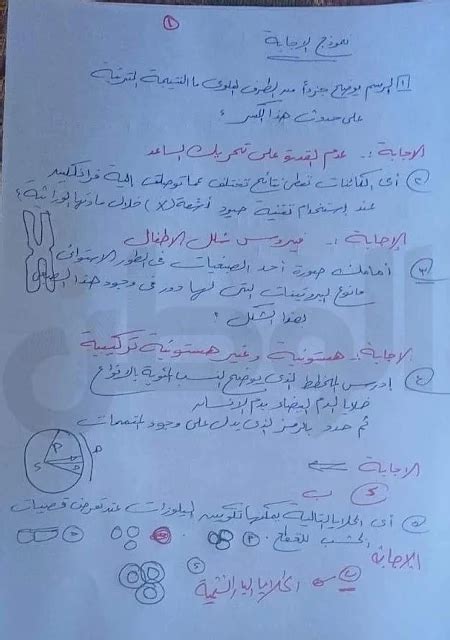 ١
نموذج الإجابة
١ الرسم يوضح جزءاً من الطرف العلوى ما النتيجة المترتبة
على حدوث هذا الكسر ؟
الإجابة :. عدم القدرة على تحريك الساعد
٢ أى الكائنات تعطى نتائج تختلف عما توصلت إليه فرانكلين
عند إستخدام تقنية حيود أشعة (X) خلال مادتها الوراثية ؟
الإجابة :. فيروس شلل الأطفال
٣ أمامك صورة أحد الصبغيات فى الطور الاستوائى
مانوع البروتينات التى لها دور فى وجود هذا الصبغى
لهذا الشكل ؟
الإجابة :. هستونية وغير هستونية تركيبية
٤ ادرس المخطط الذى يوضح النسب المئوية لأنواع
خلايا الدم البيضاء بدم الإنسان
ثم حدد بالرمز الذى يدل على وجود المتممات
الإجابة
P
S
٤ ب
٥ أى الخلايا التالية يمكنها تكوين التيلوزات عند تعرض قصيبات
الخشب للقطع
الإجابة
الخلايا البارانشيمية